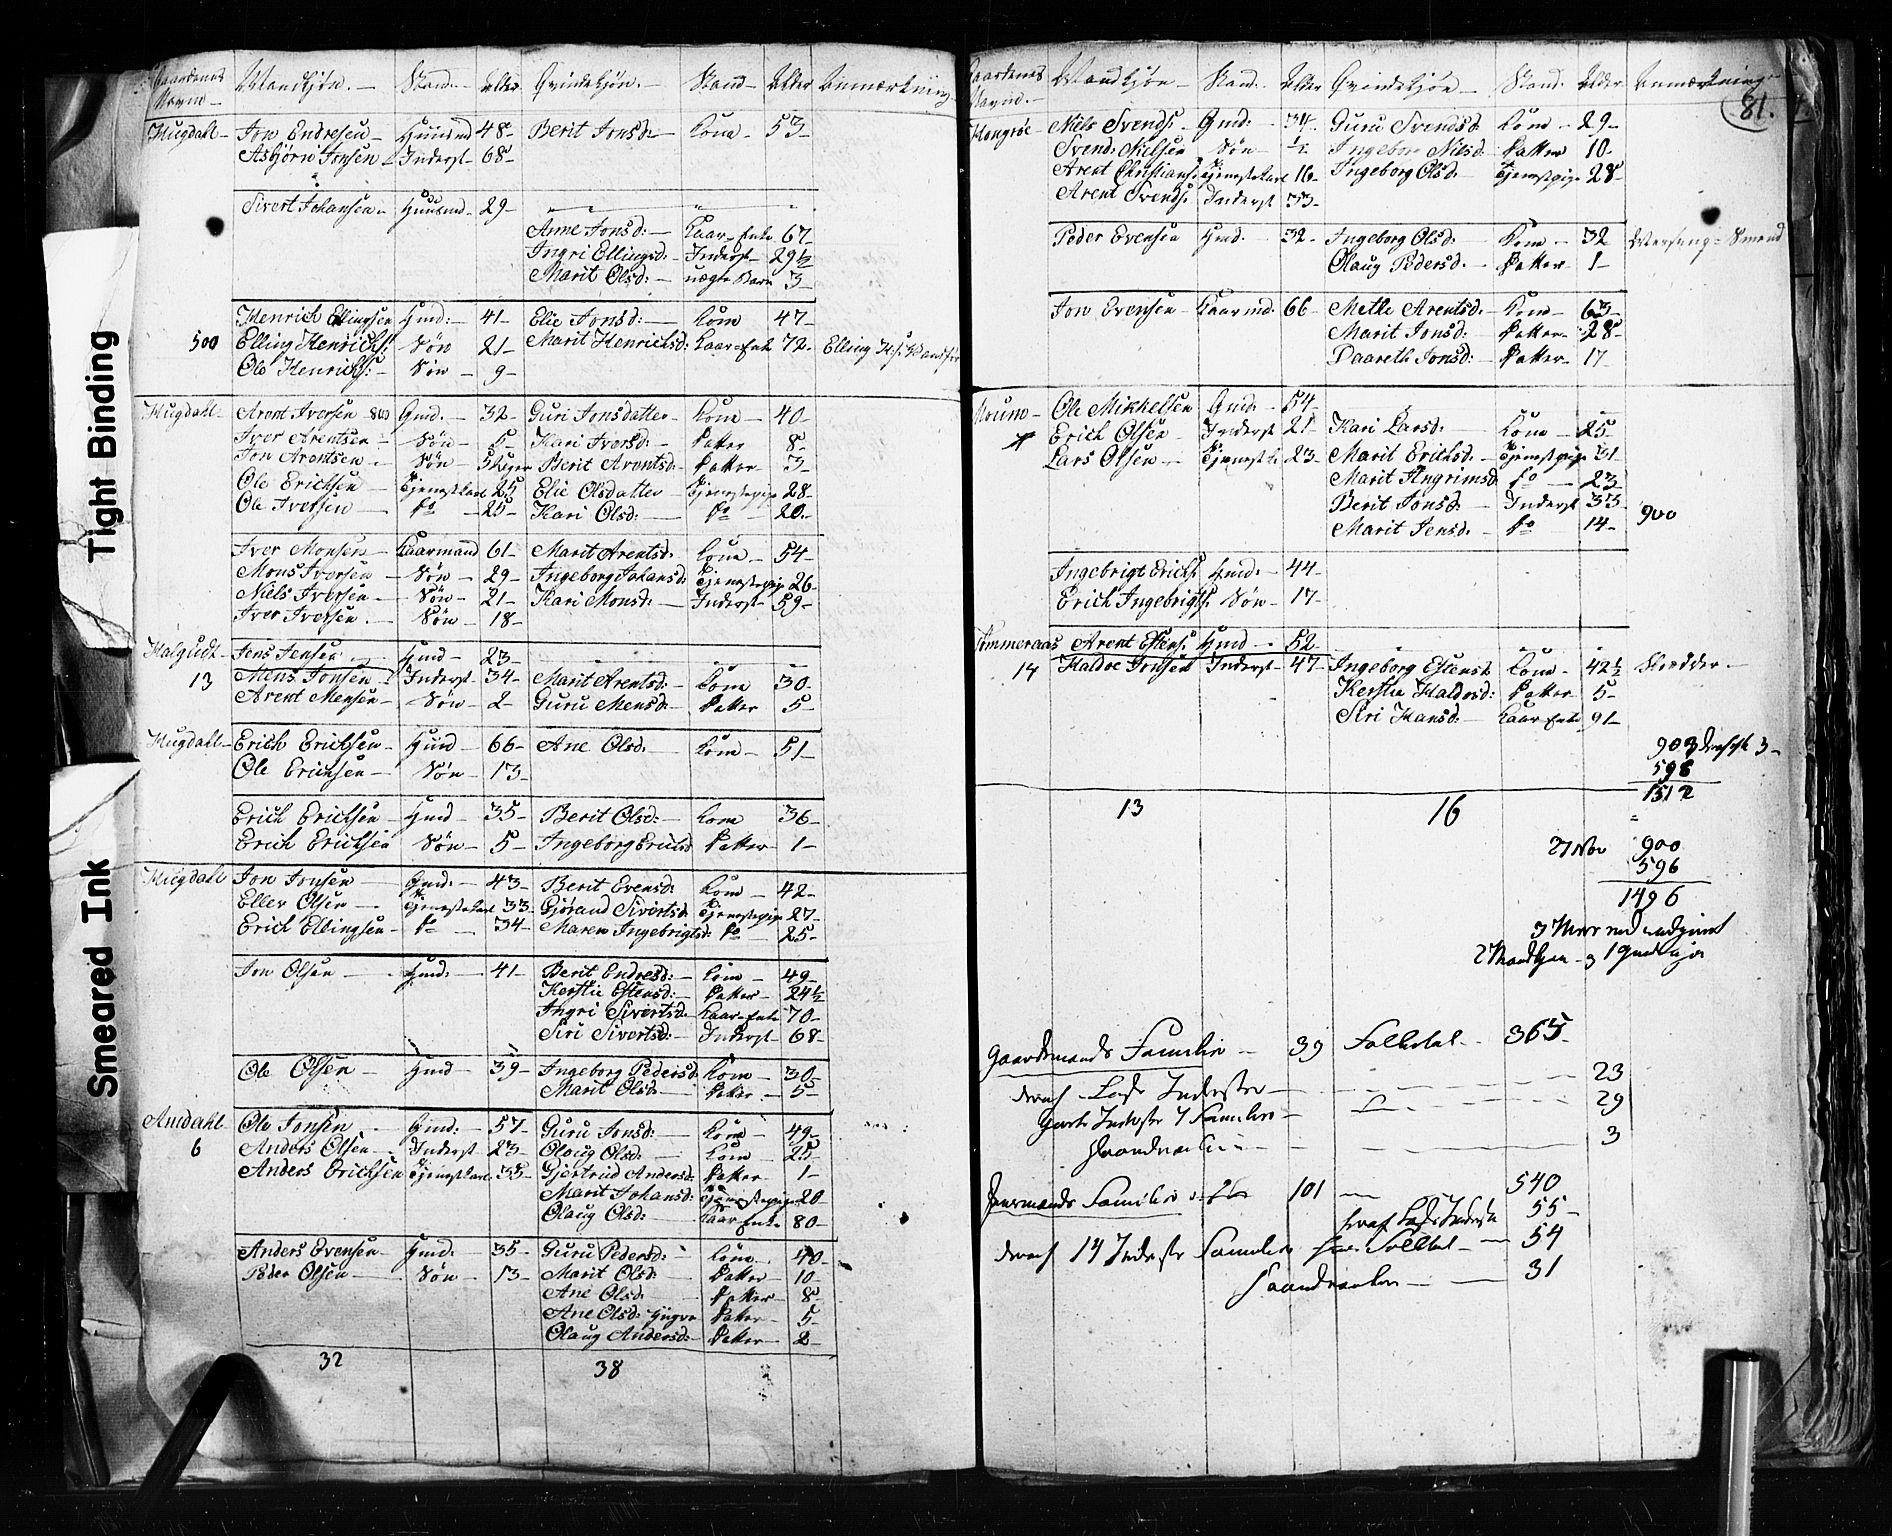 Gaardenes Navn - Mandkjön. - Stand. - Alder Qvindekjön. - Stand - Alder Anmærkning
Hugdahl - Jon Endresen - Huusmd 48 - Berit Jonsd: - Kone - 53 -
Asbjörn Jonsen Inderst - 68 -
Sivert Johansen - Huusmd - 29 -
Anne Jonsd: - Kaar-Enke 67 -
Ingri Ellingsd: - Inderst - 29½
Marit Olsd: - uægte Barn 3 -
Henrich Ellingsen Hmd: - 41 - Elie Jonsd: - Kone 47 -
500 Elling Henrichs: Sön 21 - Marit Henrichsd: Kaar-Enke 72 - Elling H.s:
Ole Henrichs: - Sön - 9 -
Hugdahl - Arent Iversen Gmd. - 32 - Guri Jonsdatter - Kone - 40 -
Iver Arentsen - Sön - 5 - Kari Iversd: - Datter 8 -
Jon Arentsen - Sön - Berit Arentsd: Datter - 3
Ole Erichsen Tjenestekarl 25 Elie Olsdatter - Tjenestepige 28 -
Ole Iversen - do - 25 - Kari Olsd: - do - 20 -
Iver Monsen - Kaarmand 61 - Marit Arentsd: Kone - 54 -
Mons Iversen - Sön - 29 - Ingeborg Johansd: Tjenestepige 26 -
Niels Iversen - Sön - 21 - Kari Monsd: - Inderst - 59 -
Iver Iversen - Sön - 18 -
Jens Jensen - Hmd - 23 -
13 Mens Jonsen - Inderst - 34 - Marit Arentsd: - Kone 30 -
Arent Mensen - Sön - 2 - Guru Mensd: - Datter 5 -
Hugdahl - Erich Erichsen - Hmd 66 - Ane Olsd. - Kone - 51 -
Ole Erichsen - Sön - 13 -
Erich Erichsen - Hmd - 35 - Berit Olsd: - Kone 36 -
Erich Erichsen Sön - 5 - Ingeborg Erichsd Datter - 1 -
Hugdahl Jon Jonsen - Gmd: - 43 - Berit Evensd: Kone - 42 -
Eller Olsen - Tjenestekarl 33 - Gjöraud Sivertsd: Tjenestepige 27 -
Erich Ellingsen - do - 34 - Maren Ingebrigtsd: do - 25 -
Jon Olsen - Hmd: - 41 - Berit Endresd: - Kone - 49 -
Kerstie Estensd: - Datter - 24½
Ingri Sivertsd: Kaar-Enke 70 -
Siri Sivertsd: - Inderst - 68 -
Ole Olsen - Hmd - 39 - Ingeborg Pedersd: Kone - 30 -
Marit Olsd: - Datter - 5 -
Amdahl - Ole Jonsen - Gmd: - 57 - Guru Jonsd: - Kone - 49 -
6 Anders Olsen - Inderst - 23 - Olaug Olsd: - Kone - 25 -
Anders Erichsen Tjenestkarl 35 - Gjertrud Andersd: Datter 1 -
Marit Johansd: Tjenestepige 20 -
Olaug Olsd: - Kaar-Enke 80 -
Anders Evensen Hmd: - 35 - Guru Pedersd: - Kone - 40 -
Peder Olsen - Sön - 13 - Marit Olsd: Datter - 10 -
Ane Olsd: Datter - 8 -
Ane Olsd: Yngre Datter - 5 -
Olaug Andersd: - Datter - 2 -
32 38
Gaardenes Navn. - Mandkjön - Stand. - Alder Qvindekjön - Stand. Alder Anmærkning
81.
Niels Svends: - Gmd: - 34 - Guru Svendsd: Kone - 29 -
Svend Nielsen Sön - Ingeborg Nilsd: Datter 10 -
Arent Christians: Tjenestekarl 16 - Ingeborg Olsd: Tjenestepige 28 -
Arent Svends: Inderst 33 -
Peder Evensen Hmd. - 32 - Ingeborg Olsd: - Kone - 32
Olaug Pedersd: - Datter - 1 -
Jon Evensen Kaarmd: 66 - Mette Arentsd: Kone - 63 -
Marit Jonsd: Datter - 28 -
Daareth Jonsd: - Datter - 17
Ole Mikkelsen Gmd: - 54 -
Erich Olsen Inderst 21 - Kari Larsd: - Kone - 25 -
Lars Olsen - 23 - Marit Erichsd: - Tjenestpige 31
Marit Angrimsd do - 23 -
Berit Jonsd: - Inderst 33 -
Marit Jensd: do - 14 - 900
Ingebrigt Erichs: Hmd: - 44 -
Erich Ingebrigts: Sön - 17 -
Arent Estens: Hmd - 52 -
14 Haldoe Jonsen Inderst - 47 - Ingeborg Estensd: Kone - 42½ Skrædder -
Kerstie Haldosd: Datter 5 -
Siri Hansd: - Kaar-Enke 91 -
903
598
1512
13 16
900
596
1496
Gaardmands Familie - 39 Folketal - 365 -
deraf Inderster - 23
7 Familier - 29
3
Huusmands Familier 101 - 540
deraf 55 -
deraf 14 Inderste Familier Folketal - 54
31
Tight Binding
Smeared Ink